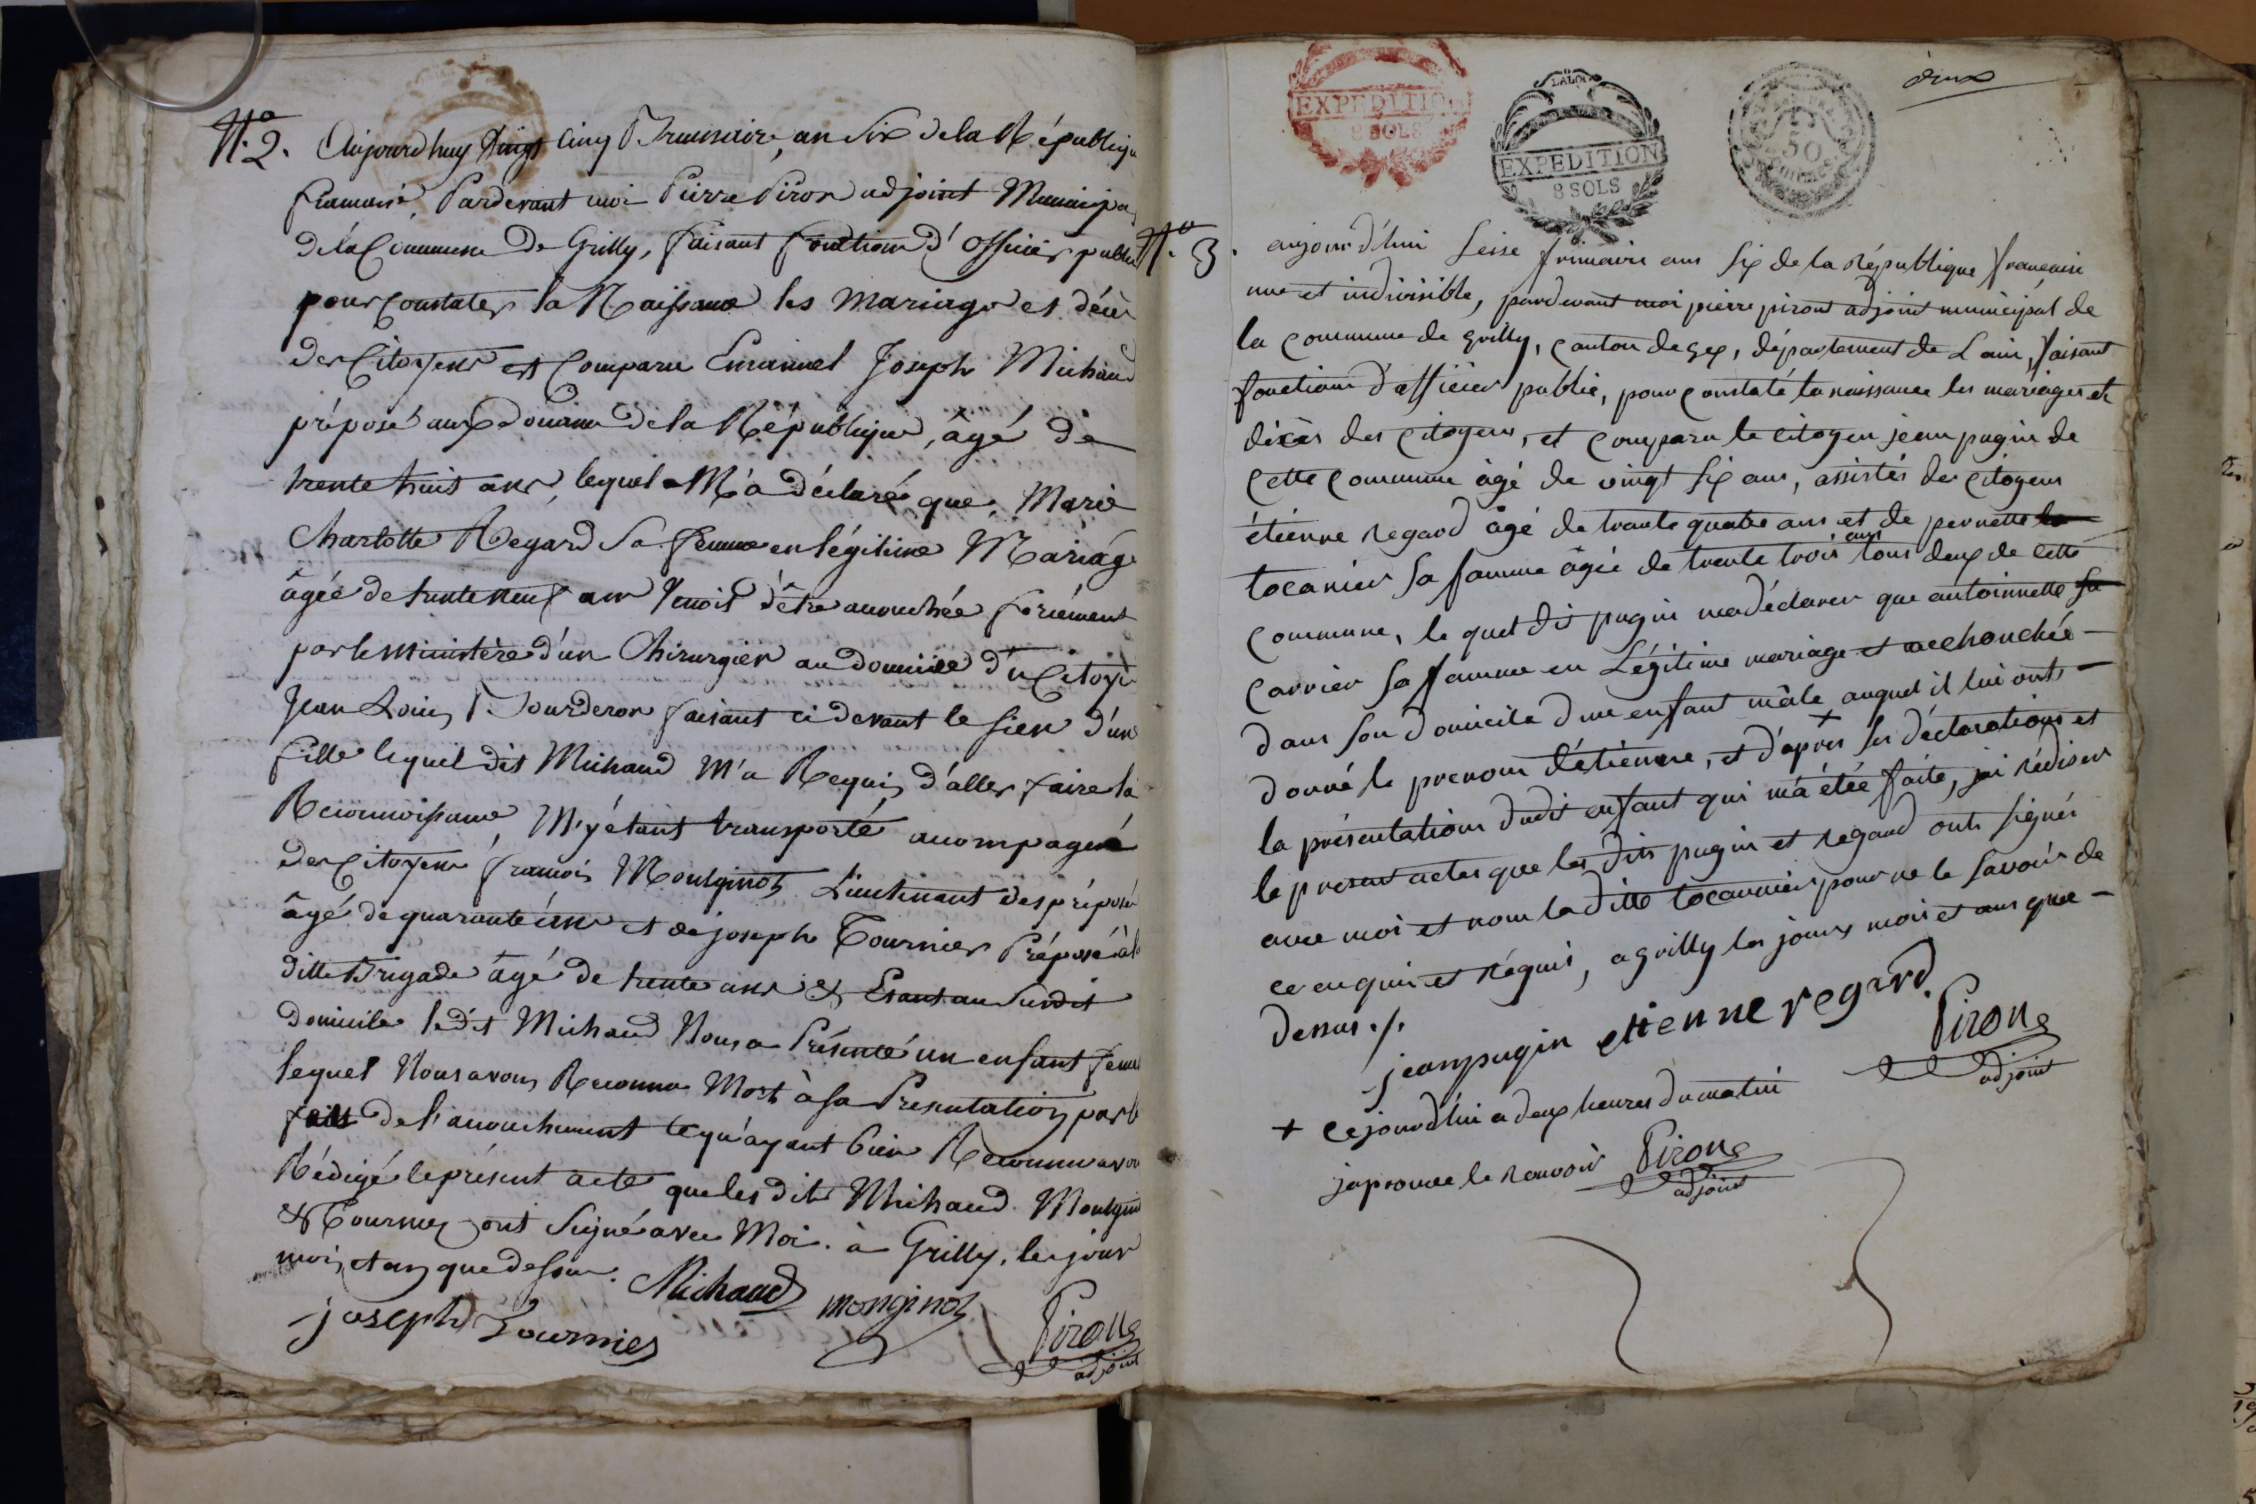 N.º 2. Aujourd'huy Vingt Cinq Brumaire, an Six de la Républiqu
francaise, Pardevant moi Pierre Piron adjoint Municipa
de la Commune De Grilly, faisant fonction d'officier public
pour Constater la Naissance les mariages et décès
des Citoyens est Comparu Emanuel Joseph Michaud
préposé aux douane de la République, âgé de
trente huit ans, lequel M'a déclaré que, Marie
Charlotte Regard Sa femme en légitime Mariage
âgée de trente neuf ans Venoit d'être acouchée forcément
par le ministère d'un Chirurgien au domicile du Citoyen
Jean Louis Bourderon faisant ci devant le sien d'un
fille lequel dit Michaud M'a Requis d'aller faire la
Reconnoissance, M'y étant transporté acompagné
des Citoyens francois Montginot Lieutenant des préposés
âgé de quarante ans et de joseph Tournier Préposé à la
ditte Brigade âgé de trente ans & Etant au Susdit
domicile le dit Michaud Nous a Présenté un enfant feme
lequel Nous avons Reconnu Mort à sa Présentation par le
fait de l'acouchement ce qu'ayant bien Reconnu avon
Rédigé le présent acte que les dits Michaud. Montgin
& Tournier ont Signé avec Moi. à Grilly. les jour
mois et an que dessus.
Michaud monginot
joseph Tournier
Pirong
adjoint
deux
EXPEDITION
8 SOLS
LA LOI
EXPEDITION
8 SOLS
50
N.º 3. aujourd'hui seise frimaire ans six de la République francaise
une et indivisible, pardevant moi pierre piront adjoint municipal de
la commune de grilly, canton de gex, département de Lain, faisant
fonction d'officier public, pour constaté la naissance les mariages et
décès des citoyens, et comparu le citoyen jean pugin de
cette commune âgé de vingt six ans, assistés des citoyens
étienne regard âgé de trante quatre ans et de pernette
tocanier sa famme âgée de trente trois ans tous deux de cette
commune, le quel dit pugin ma déclarer que antoinnette
carrier sa famme en Légitime mariage et acchouchée
dans son domicile d'une enfant mâle auquel il lui onts
donné le prenom d'étienne, et d'après + ses déclarations et
la présentation dudit enfant qui ma étée faite, jai rédiser
le present actes que les dits pugin et regard onts signés
avec moi et nom la ditte tocannier pour ne le savoir de
ce enquis et réquis, a grilly les jours mois et ans que
dessus ./.
jeanpugin etienne regard
Pirong
adjoint
+ cejourd'hui a deux heures du matin
japrouve le renvoi Pirong
adjoint